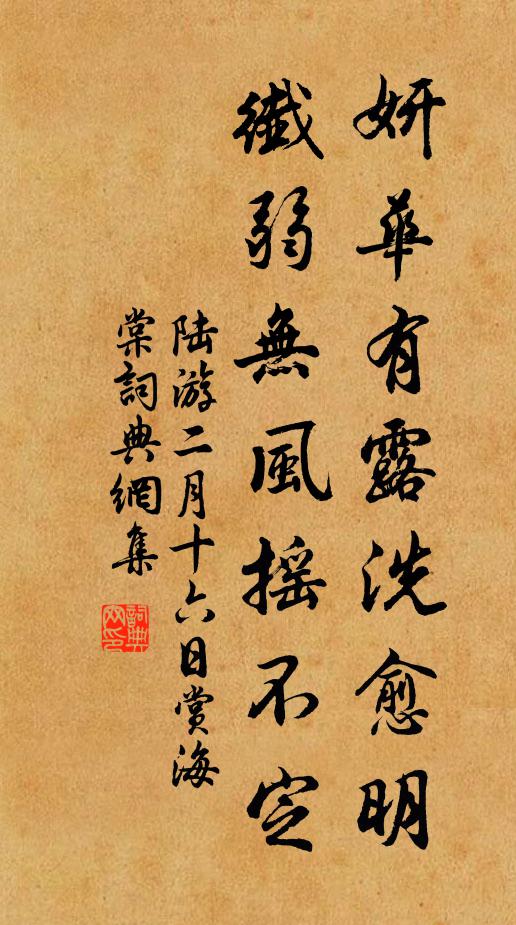 妍華有露洗愈明
纖弱無風搖不定
陆游二月十六日賞海
棠詞典網集
詞典
网印